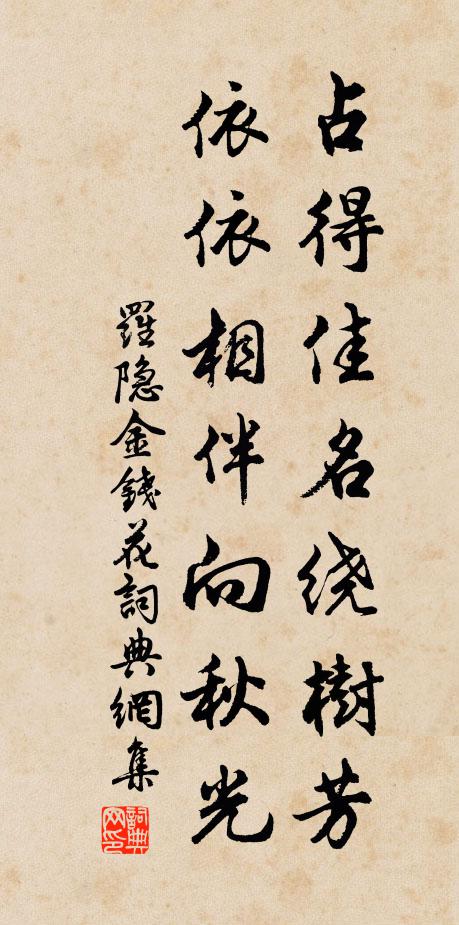 占得佳名绕樹芳
依依相伴向秋光
羅隐金錢花詞典網集
詞典网印